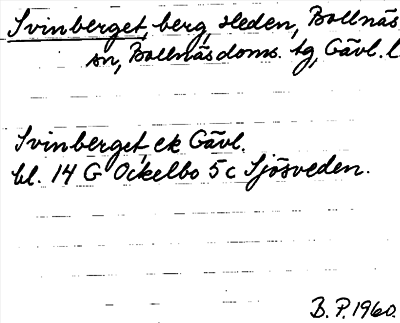 Svinberget, berg, Heden, Bollnäs
sn, Bollnäs doms. tg, Gävl. l
Svinberget, ek Gävl.
bl. 14 G Ockelbo 5 c Sjösveden.
B. P. 1960.